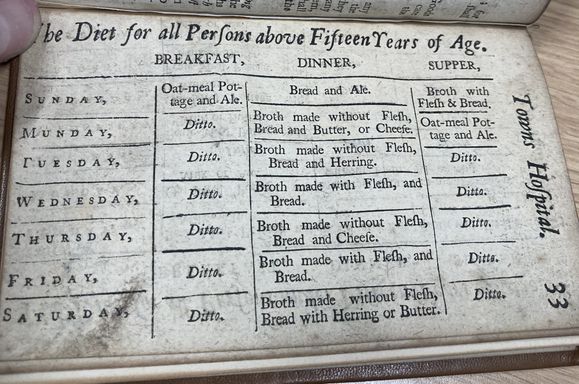 The Diet for all Perſons above Fifteen Years of Age.
BREAKFAST, DINNER, SUPPER,
SUNDAY,
Oat-meal Pot-
tage and Ale.
Bread and Ale.
Broth with
Fleſh & Bread.
MUNDAY,
Ditto.
Broth made without Fleſh,
Bread and Butter, or Cheeſe.
Oat-meal Pot-
tage and Ale.
TUESDAY,
Ditto.
Broth made without Fleſh,
Bread and Herring.
Ditto.
WEDNESDAY,
Ditto.
Broth made with Fleſh, and
Bread.
Ditto.
THURSDAY,
Ditto.
Broth made without Fleſh,
Bread and Cheeſe.
Ditto.
FRIDAY,
Ditto.
Broth made with Fleſh, and
Bread.
Ditto.
SATURDAY,
Ditto.
Broth made without Fleſh,
Bread with Herring or Butter.
Ditto.
Towns Hoſpital.
33